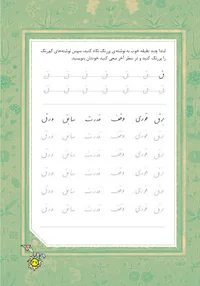 ابتدا چند دقیقه خوب به نوشته‌ی پررنگ نگاه کنید، سپس نوشته‌های کم‌رنگ
را پررنگ کنید و در سطر آخر سعی کنید خودتان بنویسید.
ق ق ق ق ق ق ق
ق ق ق ق ق ق ق
برق قوری وقف قدرت سابق ورق
برق قوری وقف قدرت سابق ورق
برق قوری وقف قدرت سابق ورق
برق قوری وقف قدرت سابق ورق
برق قوری وقف قدرت سابق ورق
برق قوری وقف قدرت سابق ورق